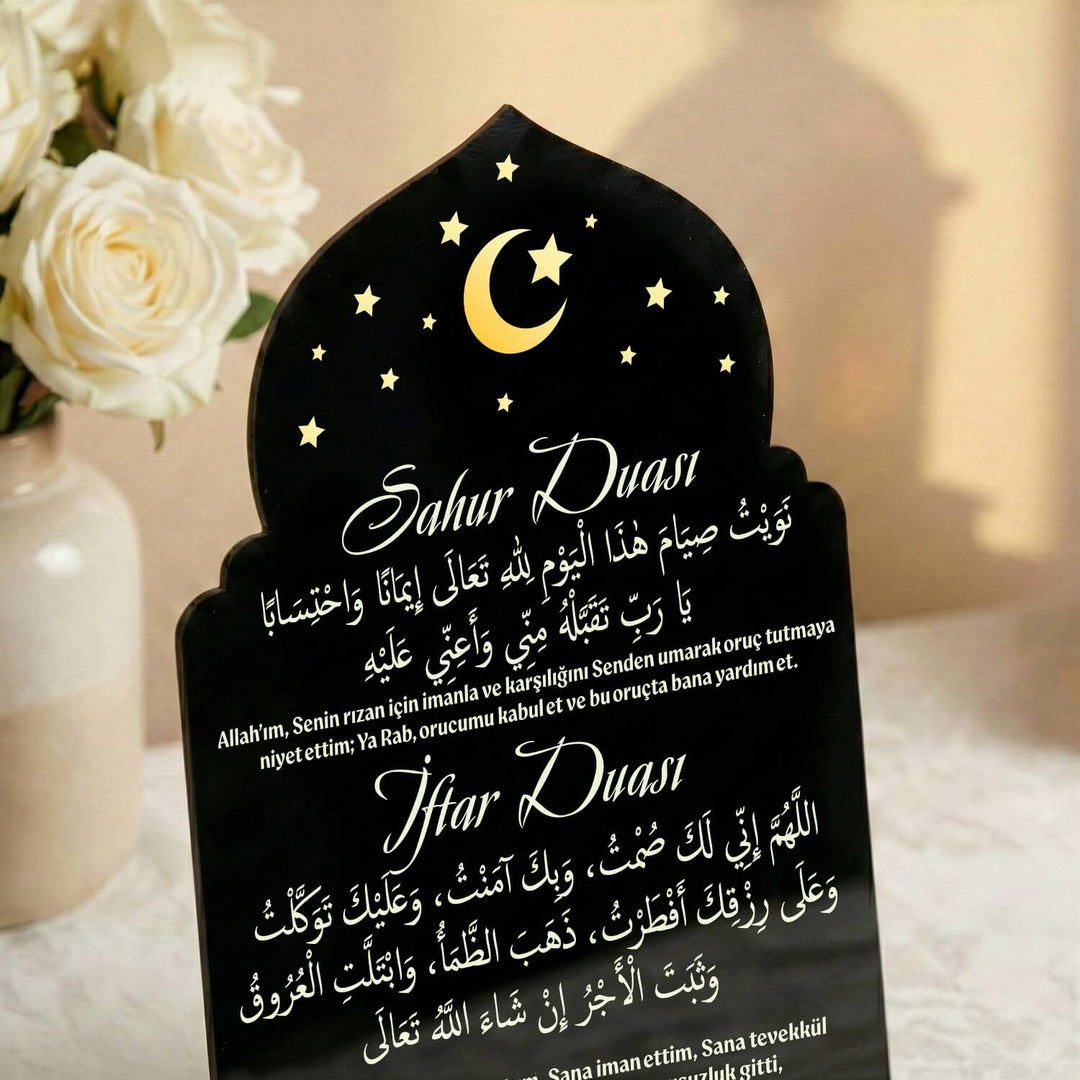 Sahur Duası
نَوَيْتُ صِيَامَ هٰذَا الْيَوْمِ لِلّٰهِ تَعَالَى إِيمَانًا وَاحْتِسَابًا
يَا رَبِّ تَقَبَّلْهُ مِنِّي وَأَعِنِّي عَلَيْهِ
Allah'ım, Senin rızan için imanla ve karşılığını Senden umarak oruç tutmaya
niyet ettim; Ya Rab, orucumu kabul et ve bu oruçta bana yardım et.
İftar Duası
اللَّهُمَّ إِنِّي لَكَ صُمْتُ، وَبِكَ آمَنْتُ، وَعَلَيْكَ تَوَكَّلْتُ
وَعَلَى رِزْقِكَ أَفْطَرْتُ، ذَهَبَ الظَّمَأُ، وَابْتَلَّتِ الْعُرُوقُ
وَثَبَتَ الْأَجْرُ إِنْ شَاءَ اللَّهُ تَعَالَى
Sana iman ettim, Sana tevekkül
gitti,